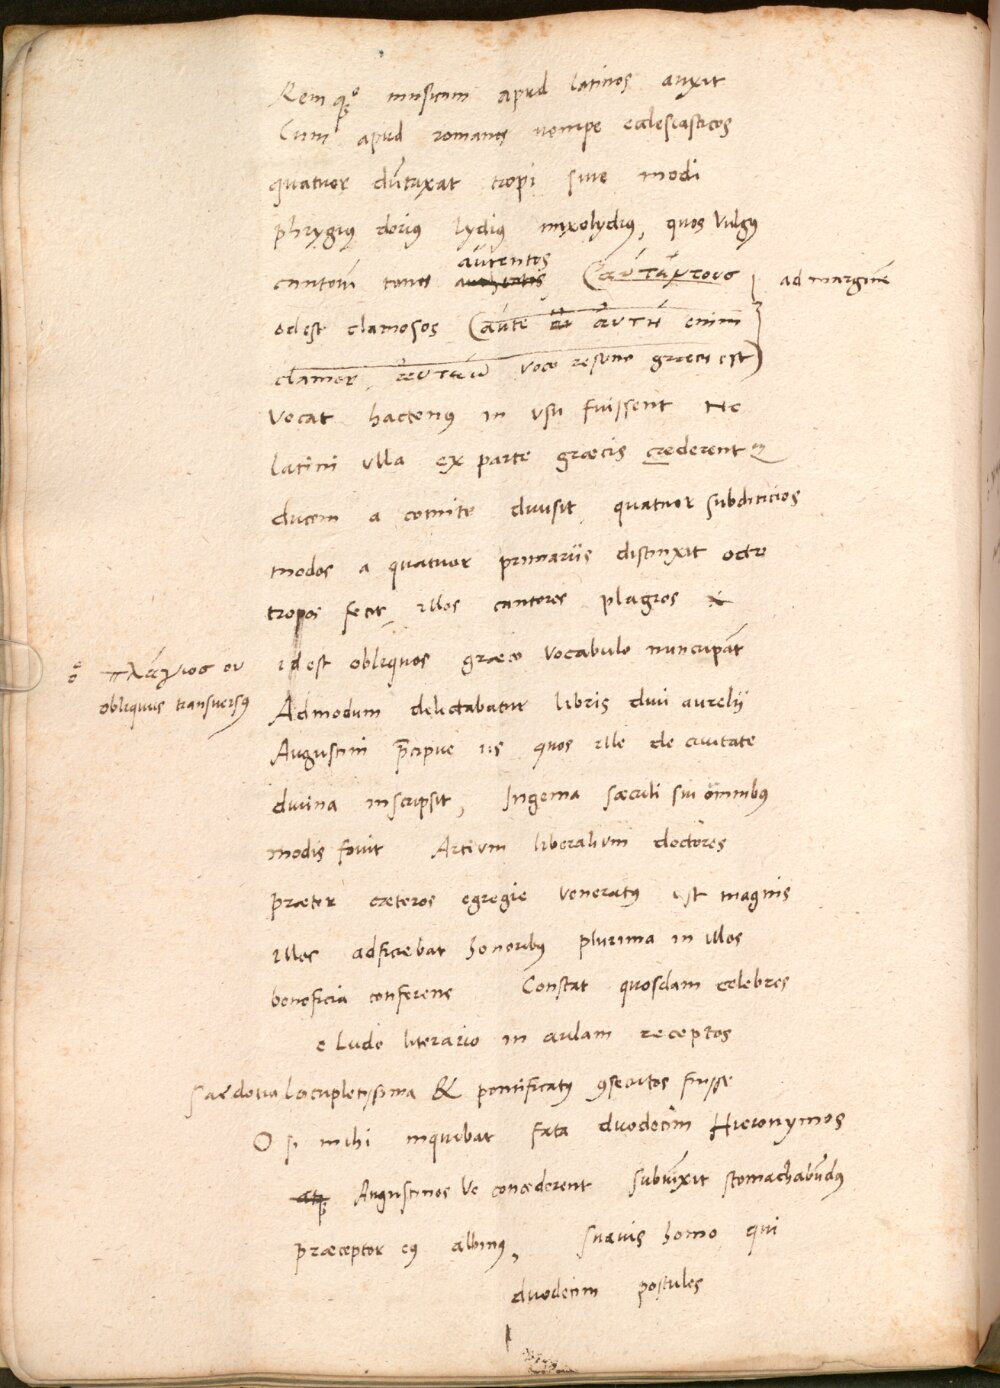 Remq᷒ musicam apud latinos auxit
Cum apud romanos nempe ecclesiasticos
quatuor dūtaxat tropi siue modi
phrygiꝰ doriꝰ lydiꝰ mixolydiꝰ, quos Vulgꝰ
autentos
cantorū tonos (αὐτάντουσ ad marginē
id est clamosos (aute αυτη enim
clamor, voce resono graecis est)
Vocat hactenꝰ in vsu fuissent Ne
latini vlla ex parte graecis crederent
ducem a comite diuisit, quatuor subditicios
modos a quatuor primariis distinxit octo
tropos fecit, illos cantores plagios
id est obliquos graeco vocabulo nuncupāt
πλάγιοσ ου
obliquus transuersꝰ
Admodum delectabatur libris diui aurelij
Augustini p̄cipue iis quos ille de ciuitate
diuina inscripsit, Ingenia saeculi sui omnibꝰ
modis fouit Artium liberalium doctores
praeter caeteros egregie Veneratꝰ est magnis
illos adficiebat honoribꝰ plurima in illos
beneficia conferens Constat quosdam celebres
e Ludo literario in aulam receptos
Sacdotia locupletissima & pontificatꝰ ꝯsecutos fuisse
O si mihi inquiebat fata duodecim Hieronymos
atq᷒ Augustinos Ve concederent subuīxit stomachabūdꝰ
praeceptor eꝰ albinꝰ, Suauis homo qui
duodecim postules